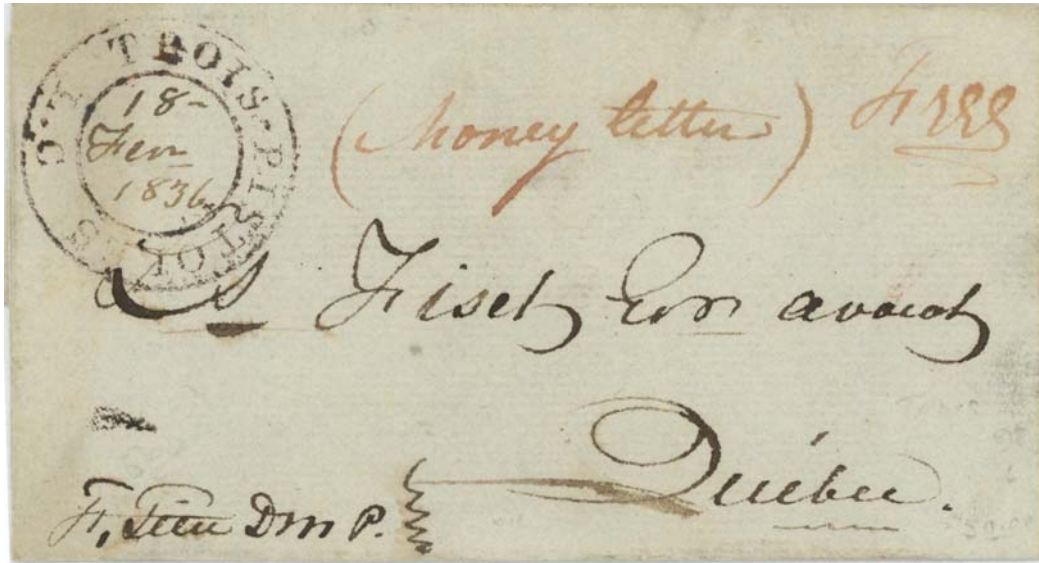 TROIS-PISTOLES
18-
Fevr
1836
(Money letter) Free
Ls Fiset Ecr avocat
Québec.
F. Têtu Dm P.